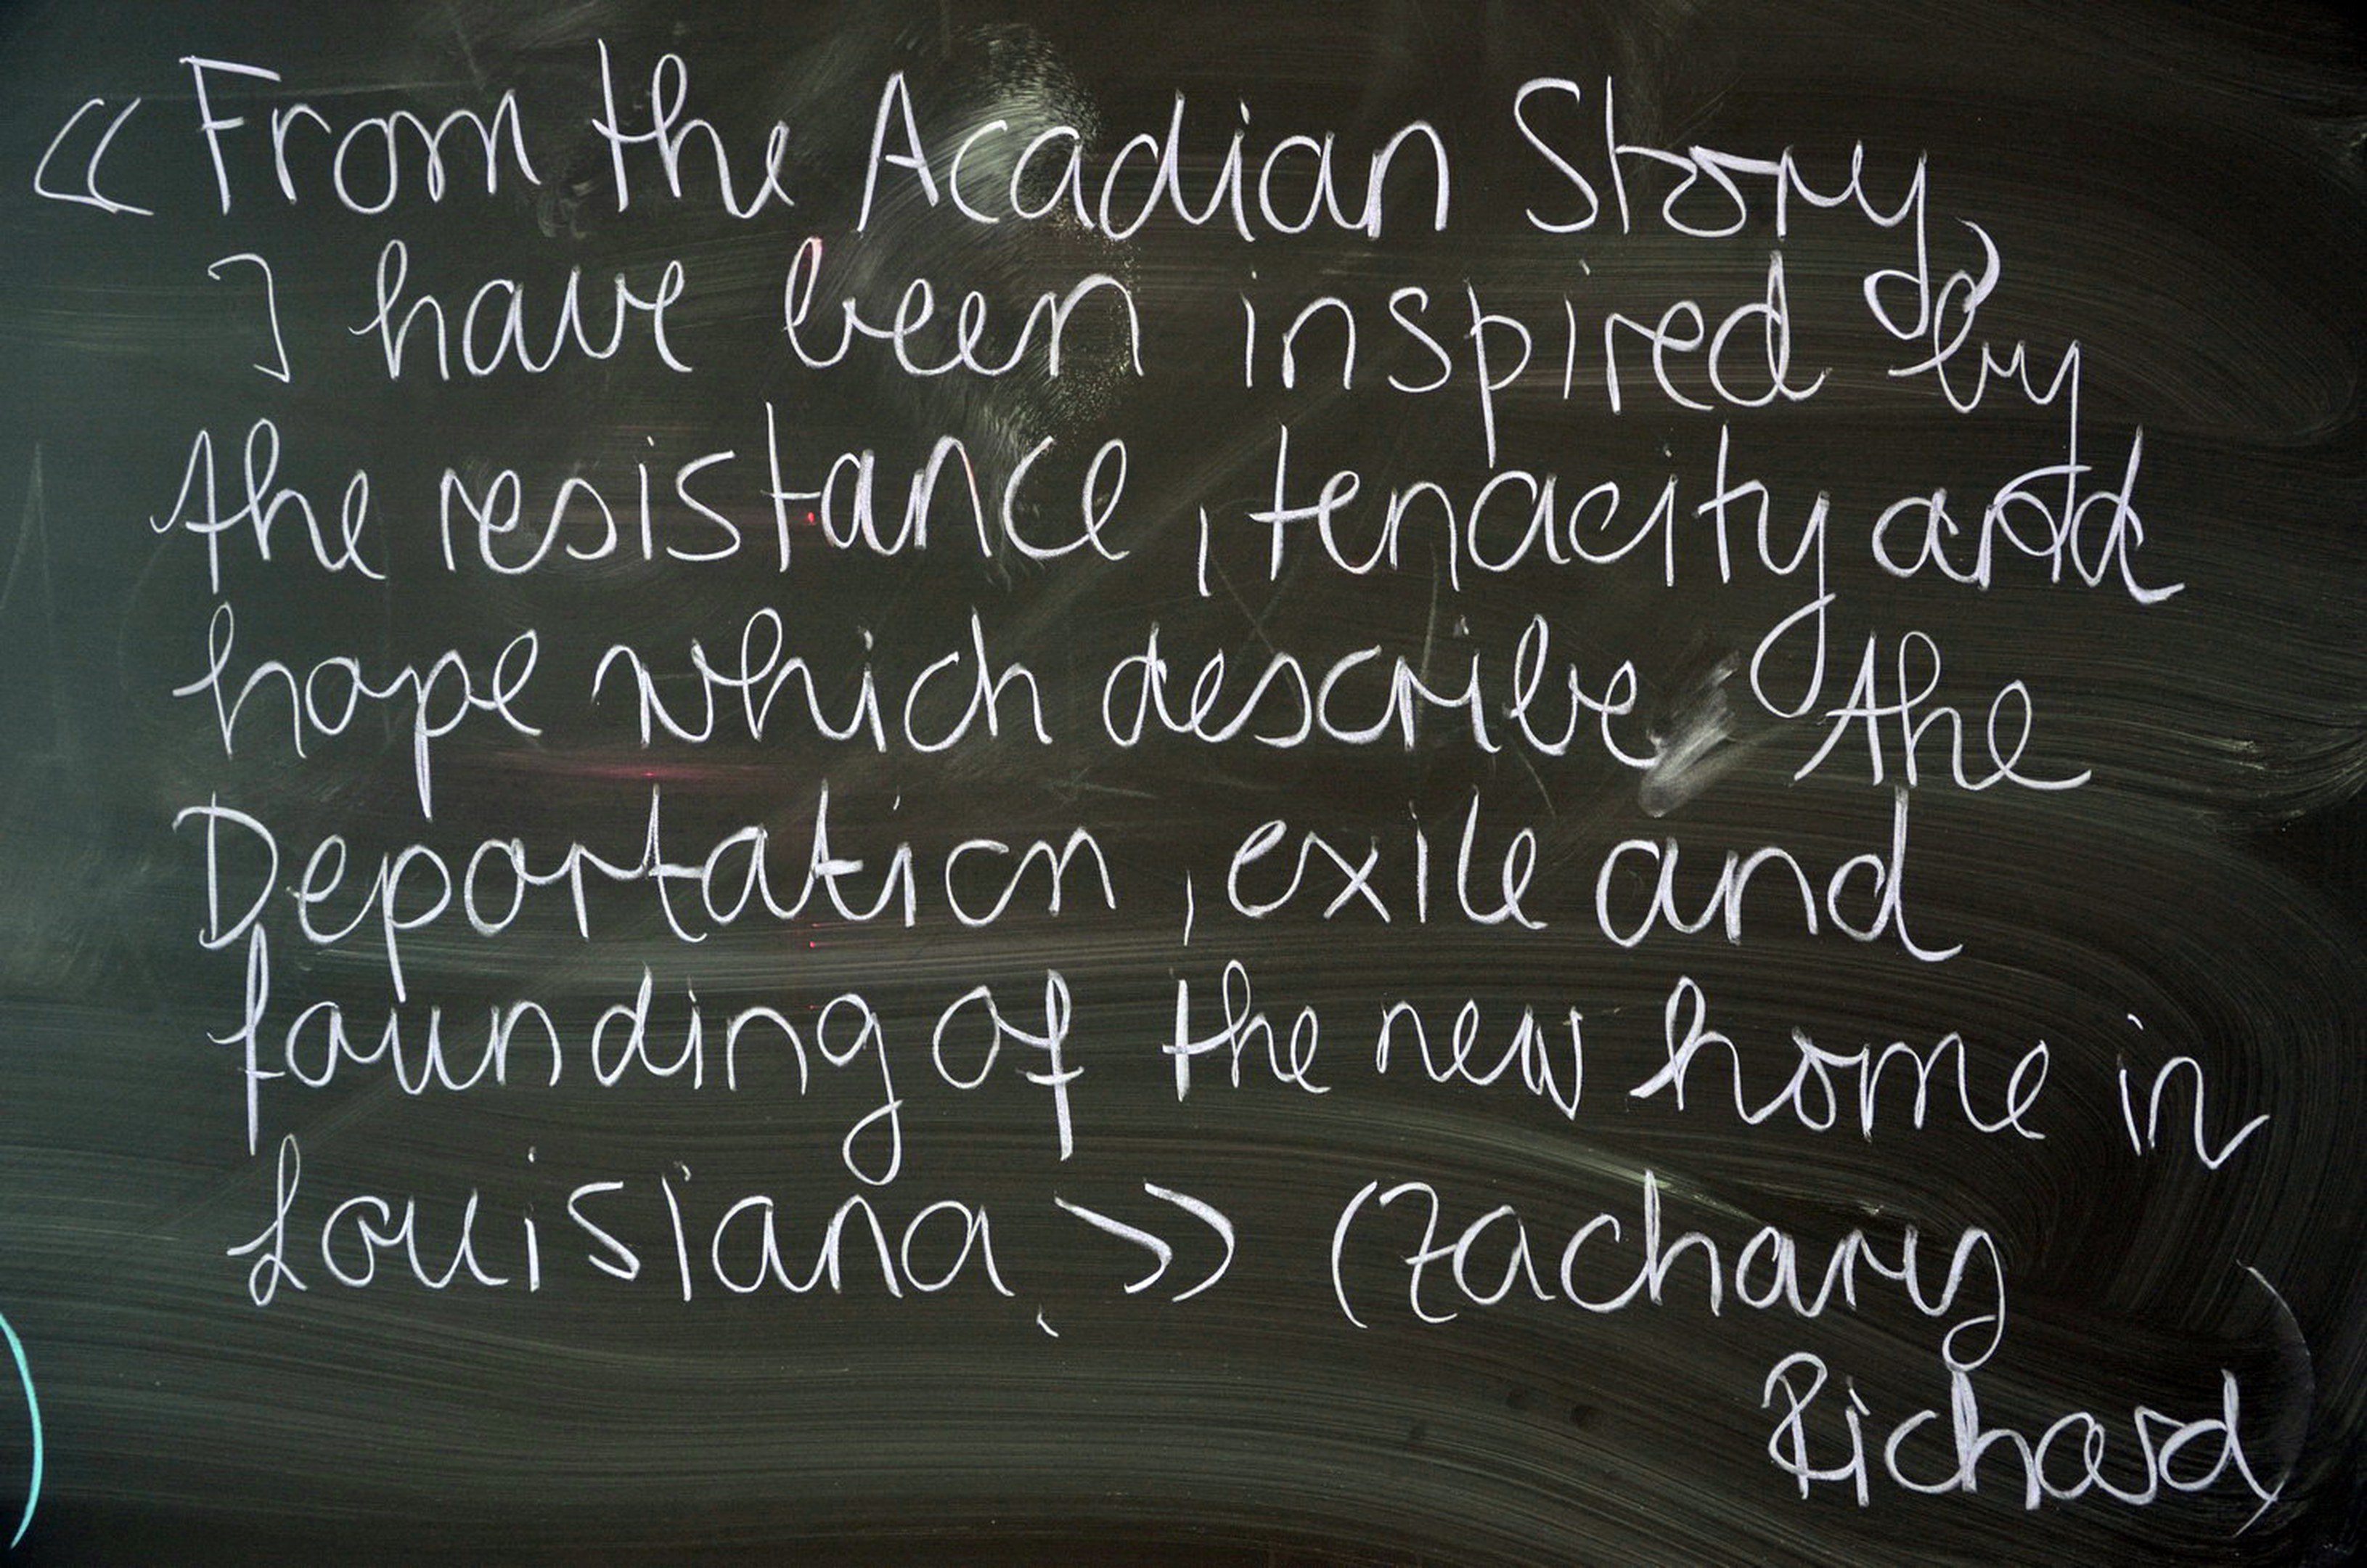 « From the Acadian Story,
I have been inspired by
the resistance, tenacity and
hope which describe the
Deportation, exile and
founding of the new home in
Louisiana. » (Zachary
Richard)